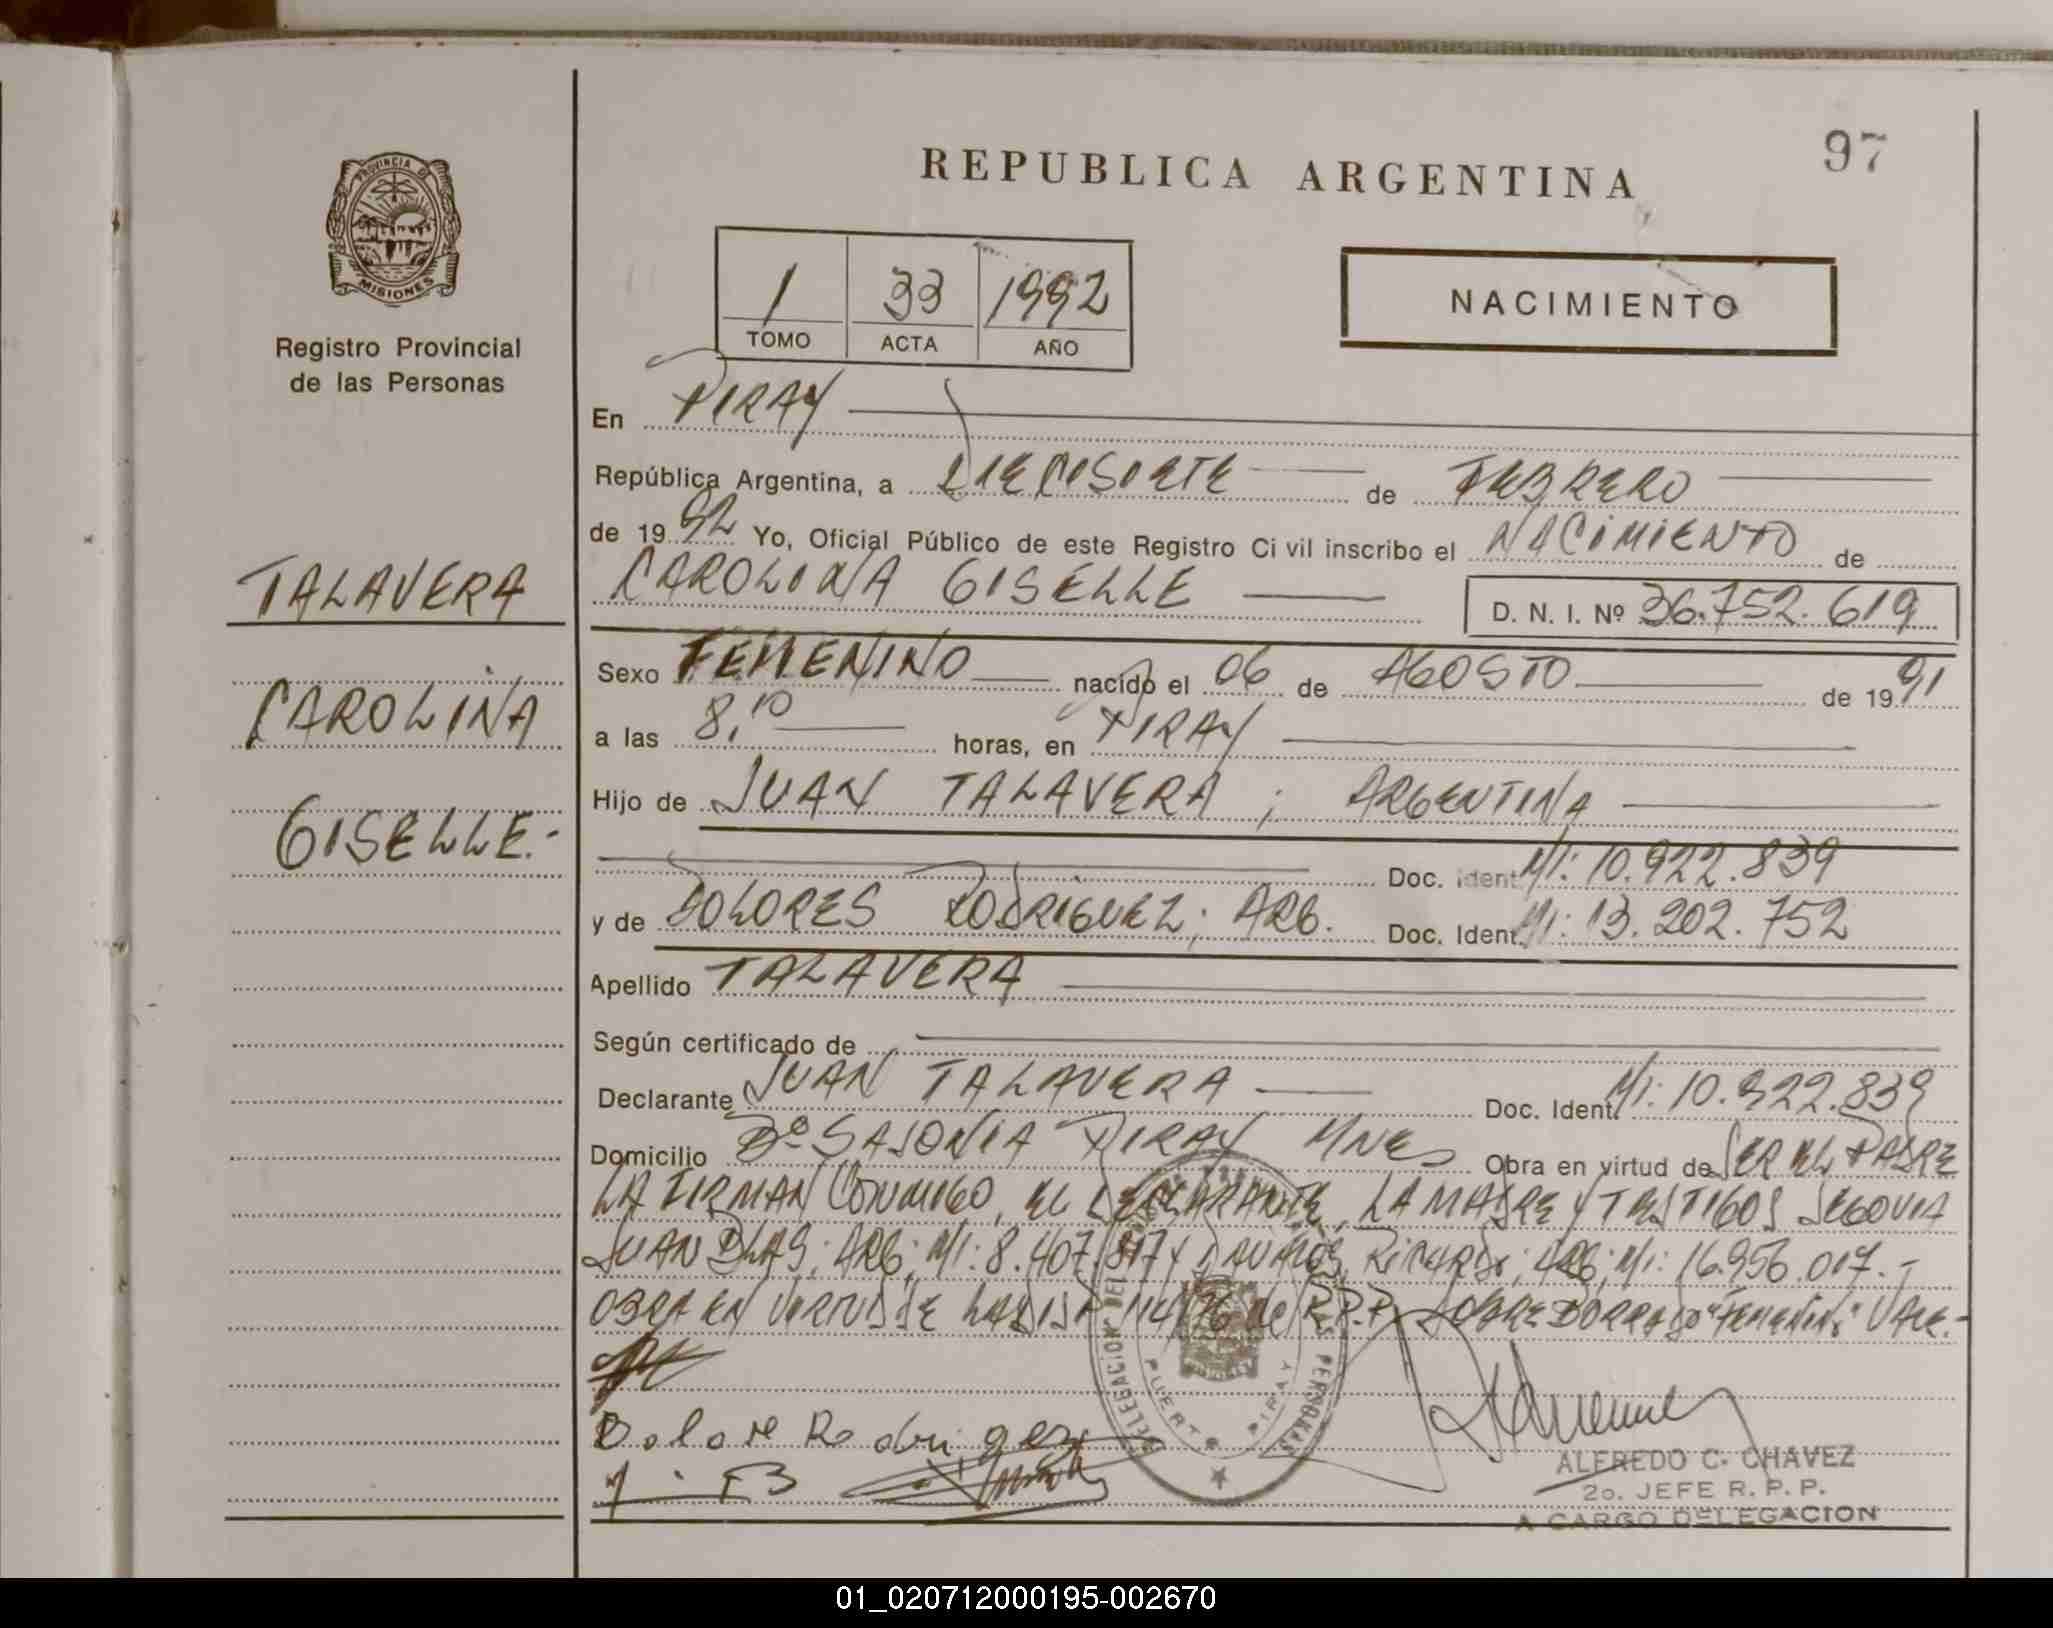 97
REPUBLICA ARGENTINA
PROVINCIA DE
MISIONES
Registro Provincial
de las Personas
1 33 1992
TOMO ACTA AÑO
NACIMIENTO
TALAVERA
CAROLINA
GISELLE.-
En PIRAY
República Argentina, a DIECISIETE de FEBRERO
de 1992 Yo, Oficial Público de este Registro Civil inscribo el NACIMIENTO de
CAROLINA GISELLE D. N. I. Nº 36.752.619
Sexo FEMENINO nacido el 06 de AGOSTO de 1991
a las 8,10 horas, en PIRAY
Hijo de JUAN TALAVERA; ARGENTINA
Doc. Ident. MI: 10.922.839
y de DOLORES RODRIGUEZ; ARG. Doc. Ident. MI: 13.202.752
Apellido TALAVERA
Según certificado de
Declarante JUAN TALAVERA Doc. Ident. MI: 10.922.839
Domicilio Bº SAJONIA PIRAY MNES Obra en virtud de SER EL PADRE
LA FIRMAN CONMIGO, EL DECLARANTE, LA MADRE Y TESTIGOS SEGOVIA
JUAN BLAS; ARG; MI: 8.407.817 Y DAVALOS, RICARDO; ARG; MI: 16.956.017.-
OBRA EN VIRTUD DE LA DISP. de R.P.P. SOBREBORRADO "FEMENINO" VALE.-
Dolore Rodrigez
DELEGACION DEL PERSONAS
PUERTO PIRAY
ALFREDO C. CHAVEZ
2o. JEFE R. P. P.
A CARGO DELEGACION
01_020712000195-002670